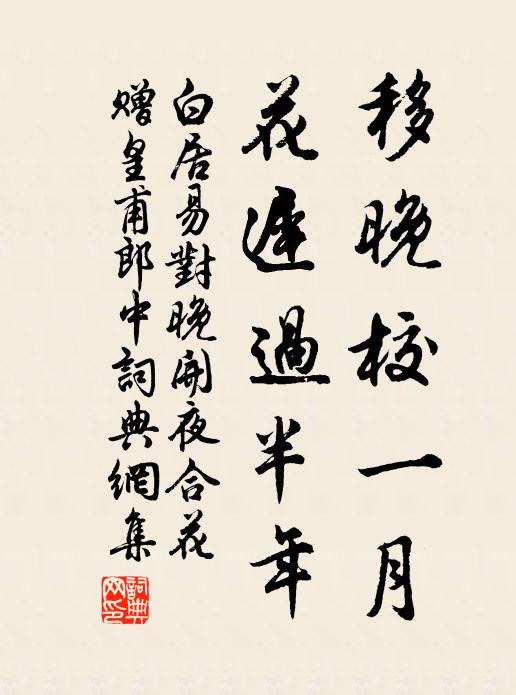 移晚校一月
花遲過半年
白居易對晚開夜合花
贈皇甫郎中詞典網集
詞典网印